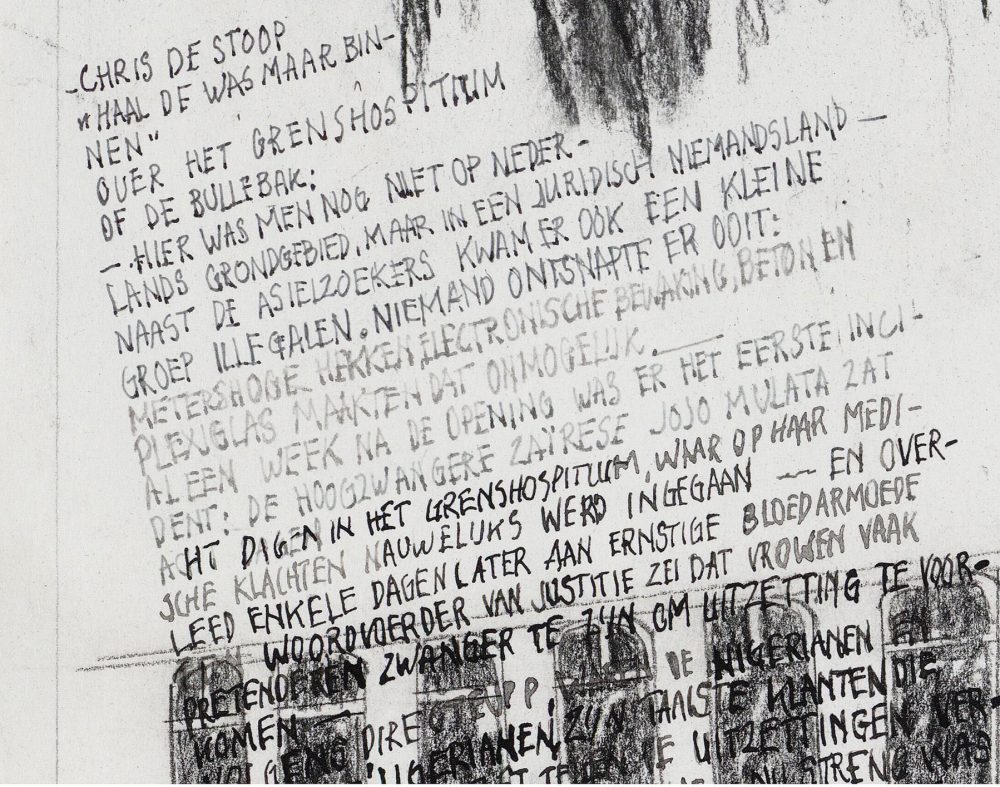 - CHRIS DE STOOP
"HAAL DE WAS MAAR BIN-
NEN"
OVER HET GRENSHOSPITIUM
OF DE BULLEBAK:
— HIER WAS MEN NOG NIET OP NEDER-
LANDS GRONDGEBIED, MAAR IN EEN JURIDISCH NIEMANDSLAND —
NAAST DE ASIELZOEKERS KWAM ER OOK EEN KLEINE
GROEP ILLEGALEN. NIEMAND ONTSNAPTE ER OOIT:
METERSHOGE HEKKEN, ELECTRONISCHE BEWAKING, BETON EN
PLEXIGLAS MAAKTEN DAT ONMOGELIJK. —
AL EEN WEEK NA DE OPENING WAS ER HET EERSTE INCI-
DENT: DE HOOGZWANGERE ZAÏRESE JOJO MULATA ZAT
ACHT DAGEN IN HET GRENSHOSPITIUM, WAAR OP HAAR MEDI-
SCHE KLACHTEN NAUWELIJKS WERD INGEGAAN — EN OVER-
LEED ENKELE DAGEN LATER AAN ERNSTIGE BLOEDARMOEDE
WOORDVOERDER VAN JUSTITIE ZEI DAT VROUWEN VAAK
PRETENDEREN ZWANGER TE ZIJN OM UITZETTING TE VOOR-
KOMEN —
VOLGENS DIRECTE DE NIGERIANEN EN
ZIJN KLANTEN DIE
UITZETTINGEN VER-
STRENG WAS